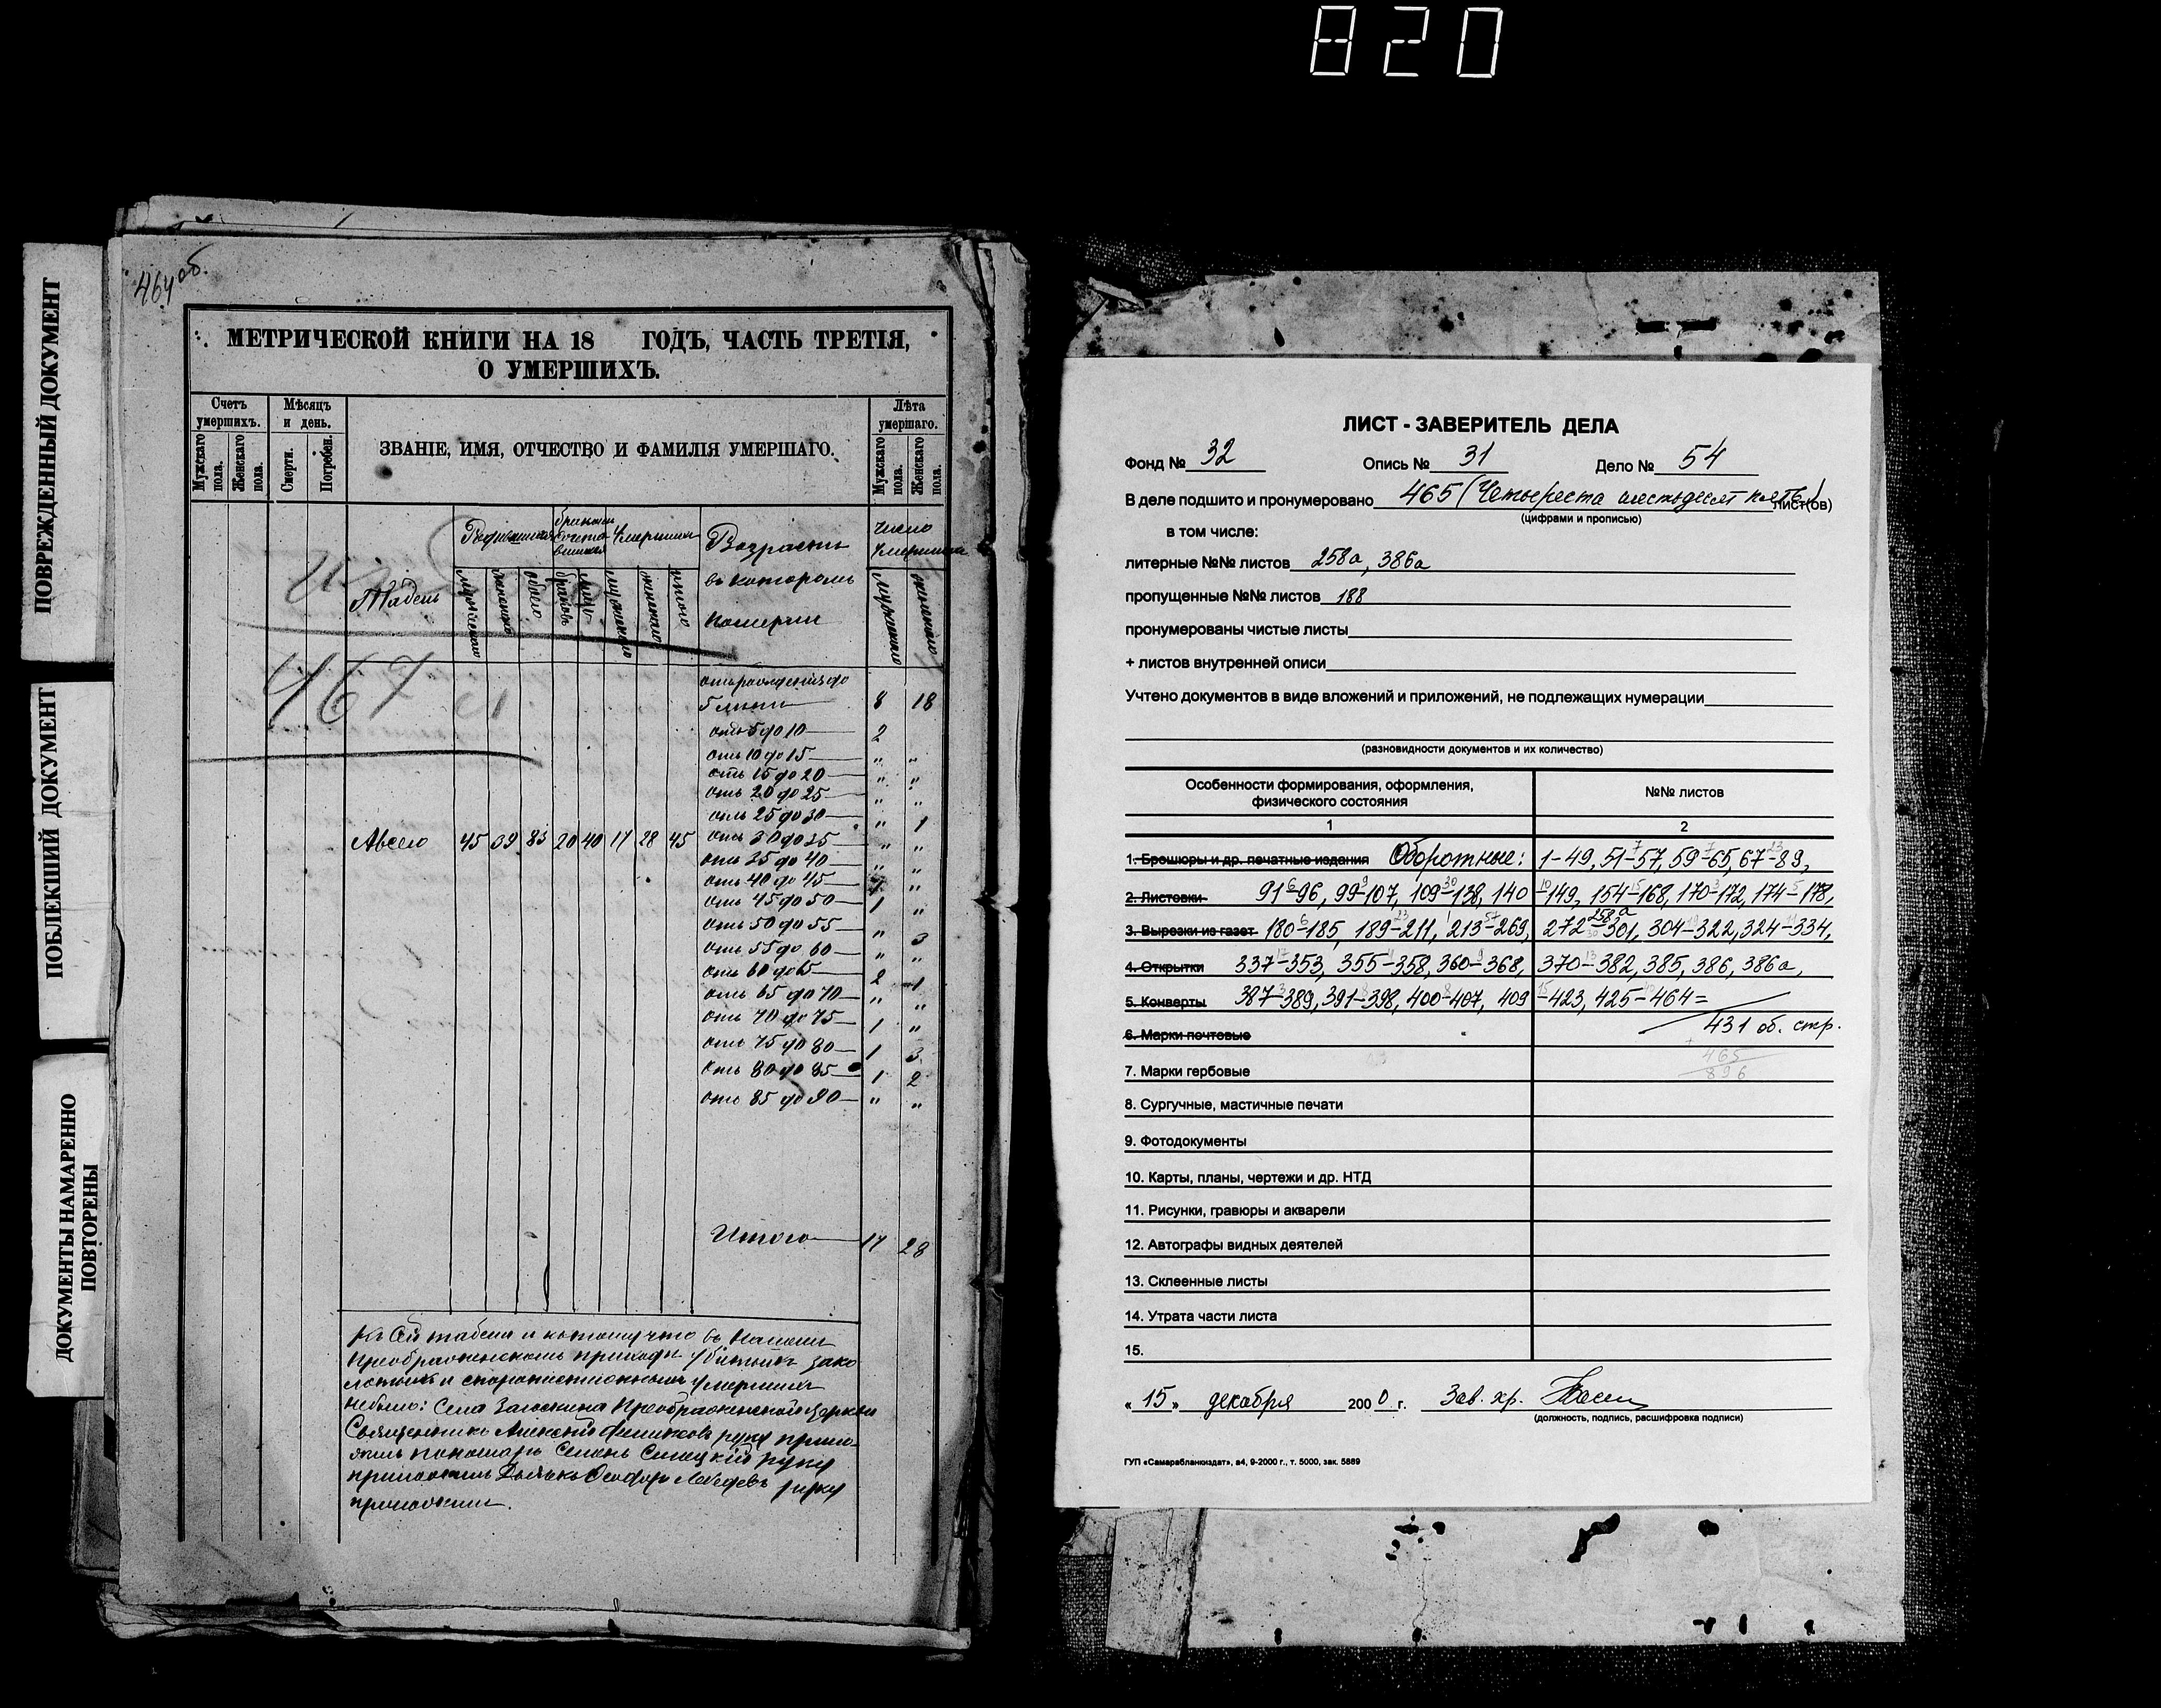 820
ПОВРЕЖДЕННЫЙ ДОКУМЕНТ
ПОБЛЕКШИЙ ДОКУМЕНТ
ДОКУМЕНТЫ НАМАРЕННО
ПОВТОРЕНЫ
464 об.
МЕТРИЧЕСКОЙ КНИГИ НА 18 ГОДЪ, ЧАСТЬ ТРЕТІЯ,
О УМЕРШИХЪ.
Счетъ умершихъ.
Мужскаго пола.
Женскаго пола.
Мѣсяцъ и день.
Смерти.
Погребен.
ЗВАНІЕ, ИМЯ, ОТЧЕСТВО И ФАМИЛІЯ УМЕРШАГО.
Лѣта умершаго.
Мужскаго пола.
Женскаго пола.
Табель
Возрастъ
въ которомъ
померли
число
мужскаго
женскаго
467
отъ рожденія до
5 лѣтъ 8 18
отъ 5 до 10 2
отъ 10 до 15 " "
отъ 15 до 20 " "
отъ 20 до 25 " "
отъ 25 до 30 " 1
отъ 30 до 35 " "
отъ 35 до 40 " "
отъ 40 до 45 "
отъ 45 до 50 1 "
отъ 50 до 55 " 3
отъ 55 до 60 " "
отъ 60 до 65 2 1
отъ 65 до 70 " "
отъ 70 до 75 1 "
отъ 75 до 80 1 3
отъ 80 до 85 1 2
отъ 85 до 90 " "
Всего 45 39 20 40 17 28 45
Итого 17 28
Къ сей табели и потому что въ нашемъ
Преображенскомъ приходѣ убитыхъ
и скоропостижно умершихъ
небыло: Села Преображенской церкви
Священникъ Алексей руку прило-
жилъ пономарь Семенъ руку
приложилъ Дьячекъ Феодоръ Лебедевъ руку
приложилъ.
ЛИСТ - ЗАВЕРИТЕЛЬ ДЕЛА
Фонд № 32 Опись № 31 Дело № 54
В деле подшито и пронумеровано 465 (Четыреста шестьдесят пять) лист(ов)
(цифрами и прописью)
в том числе:
литерные №№ листов 258а, 386а
пропущенные №№ листов 188
пронумерованы чистые листы
+ листов внутренней описи
Учтено документов в виде вложений и приложений, не подлежащих нумерации
(разновидности документов и их количество)
Особенности формирования, оформления,
физического состояния
№№ листов
1 2
1. Брошюры и др. печатные издания Оборотные: 1-49, 51-57, 59-65, 67-89,
2. Листовки 91-96, 99-107, 109-138, 140-149, 154-168, 170-172, 174-178,
258а
3. Вырезки из газет 180-185, 189-211, 213-269, 272-301, 304-322, 324-334,
4. Открытки 337-353, 355-358, 360-368, 370-382, 385, 386, 386а,
5. Конверты 387-389, 391-398, 400-407, 409-423, 425-464=
6. Марки почтовые 431 об. стр.
+ 465
7. Марки гербовые 896
8. Сургучные, мастичные печати
9. Фотодокументы
10. Карты, планы, чертежи и др. НТД
11. Рисунки, гравюры и акварели
12. Автографы видных деятелей
13. Склеенные листы
14. Утрата части листа
15.
« 15 » декабря 2000 г. Зав. хр.
(должность, подпись, расшифровка подписи)
ГУП «Самарабланкиздат», а4, 9-2000 г., т. 5000, зак. 5889